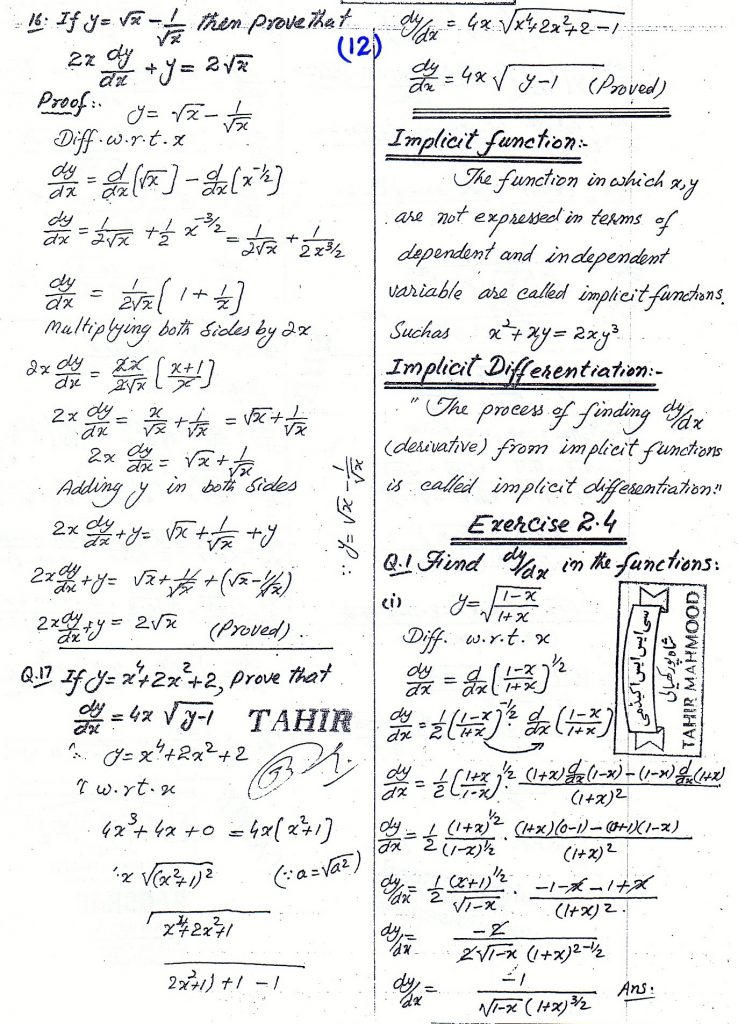 16. If y = √x - 1/√x then prove that
2x dy/dx + y = 2√x
Proof:-
y = √x - 1/√x
Diff. w.r.t. x
dy/dx = d/dx [√x] - d/dx [x^-1/2]
dy/dx = 1/2√x + 1/2 x^-3/2 = 1/2√x + 1/2x^3/2
dy/dx = 1/2√x [1 + 1/x]
Multiplying both sides by 2x
2x dy/dx = 2x/2√x [x+1/x]
2x dy/dx = x/√x + 1/√x = √x + 1/√x
2x dy/dx = √x + 1/√x
Adding y in both sides
2x dy/dx + y = √x + 1/√x + y
∵ y = √x - 1/√x
2x dy/dx + y = √x + 1/√x + (√x - 1/√x)
2x dy/dx + y = 2√x (Proved).
Q.17 If y = x^4 + 2x^2 + 2, prove that
dy/dx = 4x √y-1
TAHIR
y = x^4 + 2x^2 + 2
w.r.t. x
4x^3 + 4x + 0 = 4x[x^2+1]
x √(x^2+1)^2 (∵ a = √a^2)
√x^4 + 2x^2 + 1
2x^2+1) + 1 - 1
(12)
dy/dx = 4x √x^4+2x^2+2-1
dy/dx = 4x √y-1 (Proved)
Implicit function:-
The function in which x, y
are not expressed in terms of
dependent and independent
variable are called implicit functions.
Such as x^2 + xy = 2xy^3
Implicit Differentiation:-
"The process of finding dy/dx
(derivative) from implicit functions
is called implicit differentiation"
Exercise 2.4
Q.1 Find dy/dx in the functions:
(i) y = √1-x/1+x
Diff. w.r.t. x
dy/dx = d/dx [1-x/1+x]^1/2
dy/dx = 1/2 (1-x/1+x)^-1/2 d/dx (1-x/1+x)
TAHIR MAHMOOD
dy/dx = 1/2 (1+x/1-x)^1/2 . (1+x) d/dx (1-x) - (1-x) d/dx (1+x) / (1+x)^2
dy/dx = 1/2 (1+x)^1/2/(1-x)^1/2 . (1+x)(0-1) - (0+1)(1-x) / (1+x)^2
dy/dx = 1/2 (x+1)^1/2/√1-x . -1-x-1+x / (1+x)^2.
dy/dx = -2 / 2√1-x (1+x)^2-1/2
dy/dx = -1 / √1-x (1+x)^3/2 Ans: